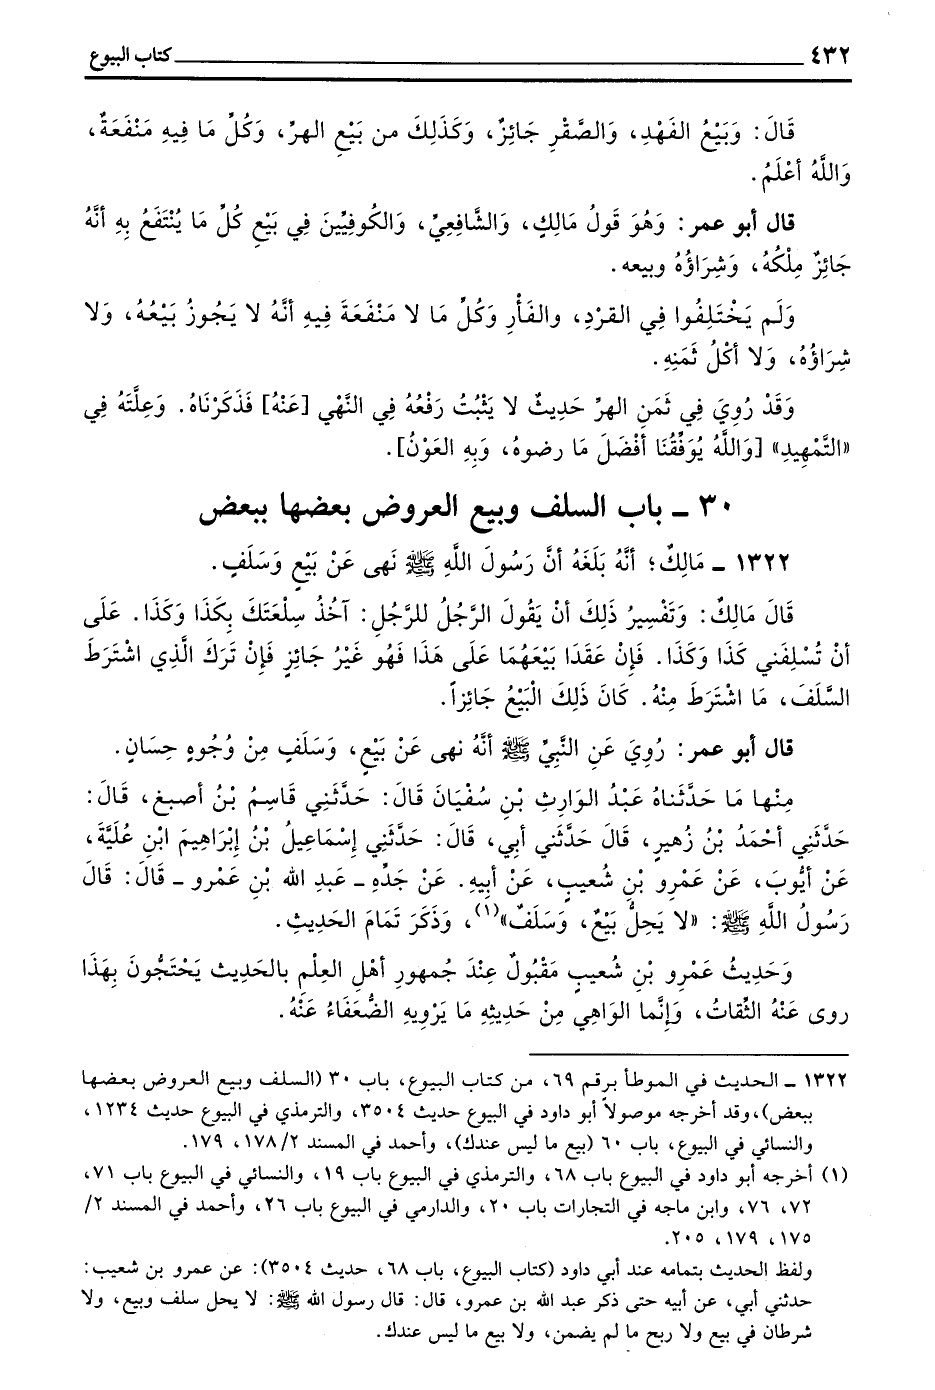 ٤٣٢ كتاب البيوع
قَالَ: وَبَيْعُ الفَهْدِ، وَالصَّقْرِ جَائِزٌ، وَكَذَلِكَ من بَيْعِ الهرِّ، وَكُلِّ مَا فِيهِ مَنْفَعَةٌ،
وَاللَّهُ أعْلَمُ.
قال أبو عمر: وَهُوَ قَولُ مَالِكٍ، وَالشَّافِعِيِّ، وَالكُوفِيِّينَ فِي بَيْعِ كُلِّ مَا يُنْتَفَعُ بِهِ أنَّهُ
جَائِزٌ مِلْكُهُ، وَشِرَاؤُهُ وبيعه.
وَلَم يَخْتَلِفُوا فِي القرْدِ، والفَأْرِ وَكُلِّ مَا لا مَنْفَعَةَ فِيهِ أنَّهُ لا يَجُوزُ بَيْعُهُ، وَلا
شِرَاؤُهُ، وَلا أكْلُ ثَمَنِهِ.
وَقَدْ رُوِيَ فِي ثَمَنِ الهرِّ حَدِيثٌ لا يَثْبُتُ رَفْعُهُ فِي النَّهْي [عَنْهُ] فَذَكَرْنَاهُ. وَعِلَّتَهُ فِي
«التَّمْهِيدِ» [وَاللَّهُ يُوَفِّقُنَا أفْضَلَ مَا رضوهُ، وَبِهِ العَوْنُ].
٣٠ - باب السلف وبيع العروض بعضها ببعض
١٣٢٢ - مَالِكٌ؛ أنَّهُ بَلَغَهُ أنَّ رَسُولَ اللَّهِ ﷺ نَهى عَنْ بَيْعٍ وَسَلَفٍ.
قَالَ مَالِكٌ: وَتَفْسِيرُ ذَلِكَ أنْ يَقُولَ الرَّجُلُ للرَّجُلِ: آخُذُ سِلْعَتَكَ بِكَذَا وَكَذَا. عَلَى
أنْ تُسْلِفَني كَذَا وَكَذَا. فَإِنْ عَقَدَا بَيْعَهُمَا عَلَى هَذَا فَهُو غَيْرُ جَائِزٍ فَإِنْ تَرَكَ الَّذِي اشْتَرَطَ
السَّلَفَ، مَا اشْتَرَطَ مِنْهُ. كَانَ ذَلِكَ الْبَيْعُ جَائِزاً.
قال أبو عمر: رُوِيَ عَنِ النَّبِيِّ ﷺ أنَّهُ نهى عَنْ بَيْعٍ، وَسَلَفٍ مِنْ وُجُوهٍ حِسَانٍ.
مِنْها مَا حَدَّثَناهُ عَبْدُ الوَارِثِ بْنِ سُفْيَانَ قَالَ: حَدَّثَنِي قَاسِمُ بْنُ أصبغ، قَالَ:
حَدَّثَنِي أحْمَدُ بْنُ زُهيرٍ، قَالَ حَدَّثَني أبي، قَالَ: حَدَّثَنِي إسْمَاعِيلُ بْنُ إِبْرَاهِيمَ ابْنِ عُلَيَّةَ،
عَنْ أيُّوبَ، عَنْ عَمْرِو بْنِ شُعيبٍ، عَنْ أبيهِ. عَنْ جَدِّهِ - عَبدِ الله بْنِ عَمْرو - قَالَ: قَالَ
رَسُولُ اللَّهِ ﷺ: «لا يَحِلُّ بَيْعٌ، وَسَلَفٌ»(١)، وَذَكَرَ تَمَامَ الحَدِيثِ.
وَحَدِيثُ عَمْرِو بْنِ شُعيبٍ مَقْبُولٌ عِنْدَ جُمهورِ أهْلِ العِلْمِ بالحَدِيث يَحْتَجُّونَ بِهَذَا
روى عَنْهُ الثِّقاتُ، وَإِنَّما الوَاهِي مِنْ حَدِيثِهِ مَا يَرْوِيهِ الضُّعَفَاءُ عَنْهُ.
١٣٢٢ - الحديث في الموطأ برقم ٦٩، من كتاب البيوع، باب ٣٠ (السلف وبيع العروض بعضها
ببعض)، وقد أخرجه موصولاً أبو داود في البيوع حديث ٣٥٠٤، والترمذي في البيوع حديث ١٢٣٤،
والنسائي في البيوع، باب ٦٠ (بيع ما ليس عندك)، وأحمد في المسند ١٧٨/٢، ١٧٩.
(١) أخرجه أبو داود في البيوع باب ٦٨، والترمذي في البيوع باب ١٩، والنسائي في البيوع باب ٧١،
٧٢، ٧٦، وابن ماجه في التجارات باب ٢٠، والدارمي في البيوع باب ٢٦، وأحمد في المسند ٢/
١٧٥، ١٧٩، ٢٠٥.
ولفظ الحديث بتمامه عند أبي داود (كتاب البيوع، باب ٦٨، حديث ٣٥٠٤): عن عمرو بن شعيب:
حدثني أبي، عن أبيه حتى ذكر عبد الله بن عمرو، قال: قال رسول الله ﷺ: لا يحل سلف وبيع، ولا
شرطان في بيع ولا ربح ما لم يضمن، ولا بيع ما ليس عندك.